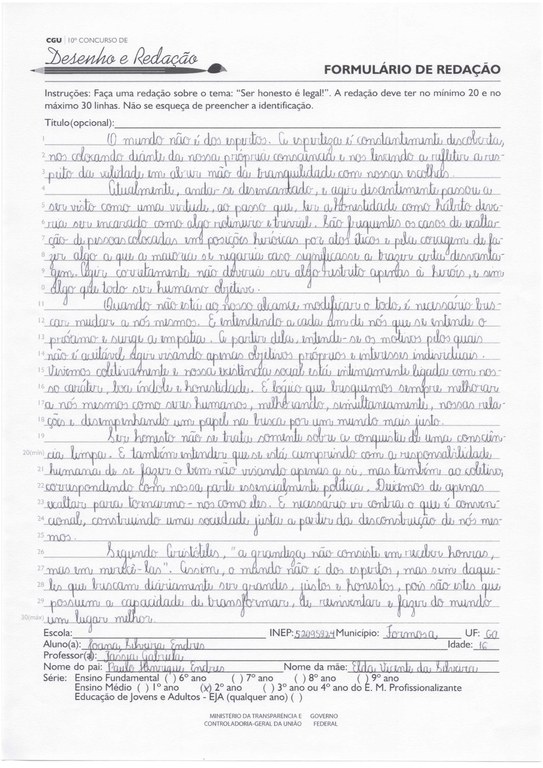 CGU | 10º CONCURSO DE
Desenho e Redação
FORMULÁRIO DE REDAÇÃO
Instruções: Faça uma redação sobre o tema: "Ser honesto é legal!". A redação deve ter no mínimo 20 e no
máximo 30 linhas. Não se esqueça de preencher a identificação.
Título(opcional):
1 O mundo não é dos espertos. A esperteza é constantemente descoberta,
2 nos colocando diante da nossa própria consciência e nos levando a refletir a res-
3 peito da validade em abrir mão da tranquilidade com nossas escolhas.
4 Atualmente, anda-se desencantado, e agir decentemente passou a
5 ser visto como uma virtude, ao passo que, ter a honestidade como hábito deve-
6 ria ser encarado como algo rotineiro e trivial. São frequentes os casos de exalta-
7 ção de pessoas colocadas em posições heróicas por atos éticos e pela coragem de fa-
8 zer algo a que a maioria se negaria caso significasse a trazer certa desvanta-
9 gem. Agir corretamente não deveria ser algo restrito apenas à heróis, e sim
0 algo que todo ser humano objetive.
11 Quando não está ao nosso alcance modificar o todo, é necessário bus-
12 car mudar a nós mesmos. E entendendo a cada um de nós que se entende o
13 próximo e surge a empatia. A partir dela, entende-se os motivos pelos quais
14 não é aceitável agir visando apenas objetivos próprios e interesses individuais.
15 Vivemos coletivamente e nossa existência social está intimamente ligada com nos-
16 so caráter, boa índole e honestidade. É lógico que busquemos sempre melhorar
17 a nós mesmos como seres humanos, melhorando, simultaneamente, nossas rela-
18 ções e desempenhando um papel na busca por um mundo mais justo.
19 Ser honesto não se trata somente sobre a conquista de uma consciên-
20(mín) cia limpa. E também entender que se está cumprindo com a responsabilidade
21 humana de se fazer o bem não visando apenas a si, mas também ao coletivo,
22 correspondendo com nossa parte essencialmente política. Deixemos de apenas
23 exaltar para tornarmo-nos como eles. É necessário ir contra o que é conven-
24 cional, construindo uma sociedade justa a partir da desconstrução de nós mes-
25 mos.
26 Segundo Aristóteles, "a grandeza não consiste em receber honras,
27 mas em merecê-las". Assim, o mundo não é dos espertos, mas sim daque-
28 les que buscam diariamente ser grandes, justos e honestos, pois são estes que
29 possuem a capacidade de transformar, de reinventar e fazer do mundo
30(máx) um lugar melhor.
Escola: INEP: 52095924 Município: Formosa UF: GO
Aluno(a): Joana Silveira Endres Idade: 16
Professor(a): Gabriela
Nome do pai: Paulo Henrique Endres Nome da mãe: Elda Vicente da Silveira
Série: Ensino Fundamental ( ) 6º ano ( ) 7º ano ( ) 8º ano ( ) 9º ano
Ensino Médio ( ) 1º ano (x) 2º ano ( ) 3º ano ou 4º ano do E. M. Profissionalizante
Educação de Jovens e Adultos - EJA (qualquer ano) ( )
MINISTÉRIO DA TRANSPARÊNCIA E GOVERNO
CONTROLADORIA-GERAL DA UNIÃO FEDERAL